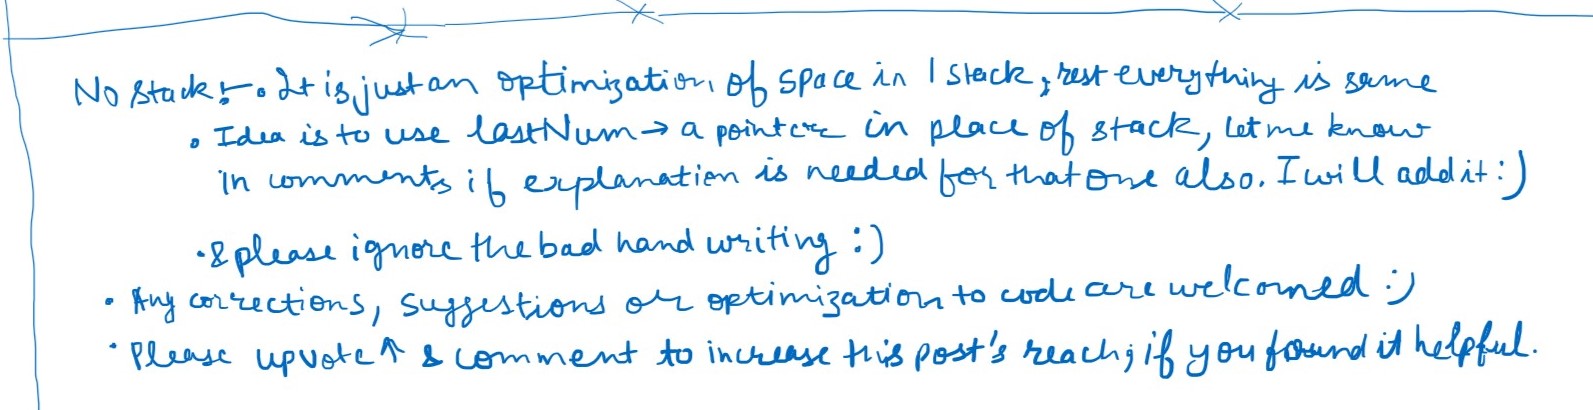 No Stack :- • It is just an optimization of space in 1 stack, rest everything is same
• Idea is to use lastNum → a pointer in place of stack, let me know
in comments if explanation is needed for that one also. I will add it :)
• & please ignore the bad hand writing :)
• Any corrections, suggestions or optimization to code are welcomed :)
• Please upvote ↑ & comment to increase this post's reach, if you found it helpful.